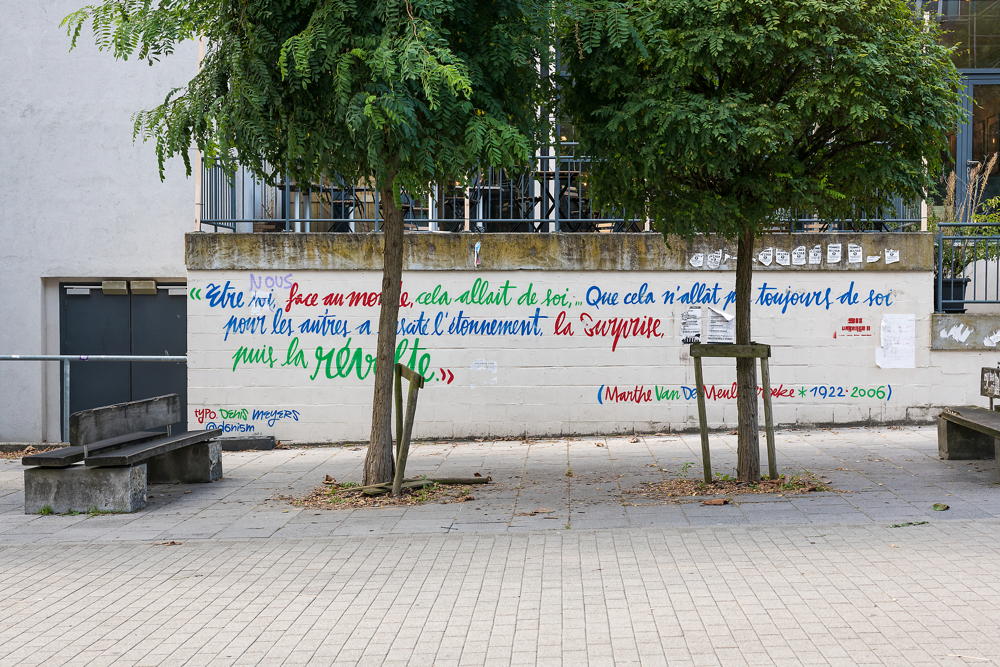 NOUS
« Être soi, face au monde, cela allait de soi,... Que cela n'allât pas toujours de soi
pour les autres a suscité l'étonnement, la surprise,
puis la révolte. »
(Marthe Van De Meulebroeke * 1922 · 2006)
typo. Denis Meyers
@donism